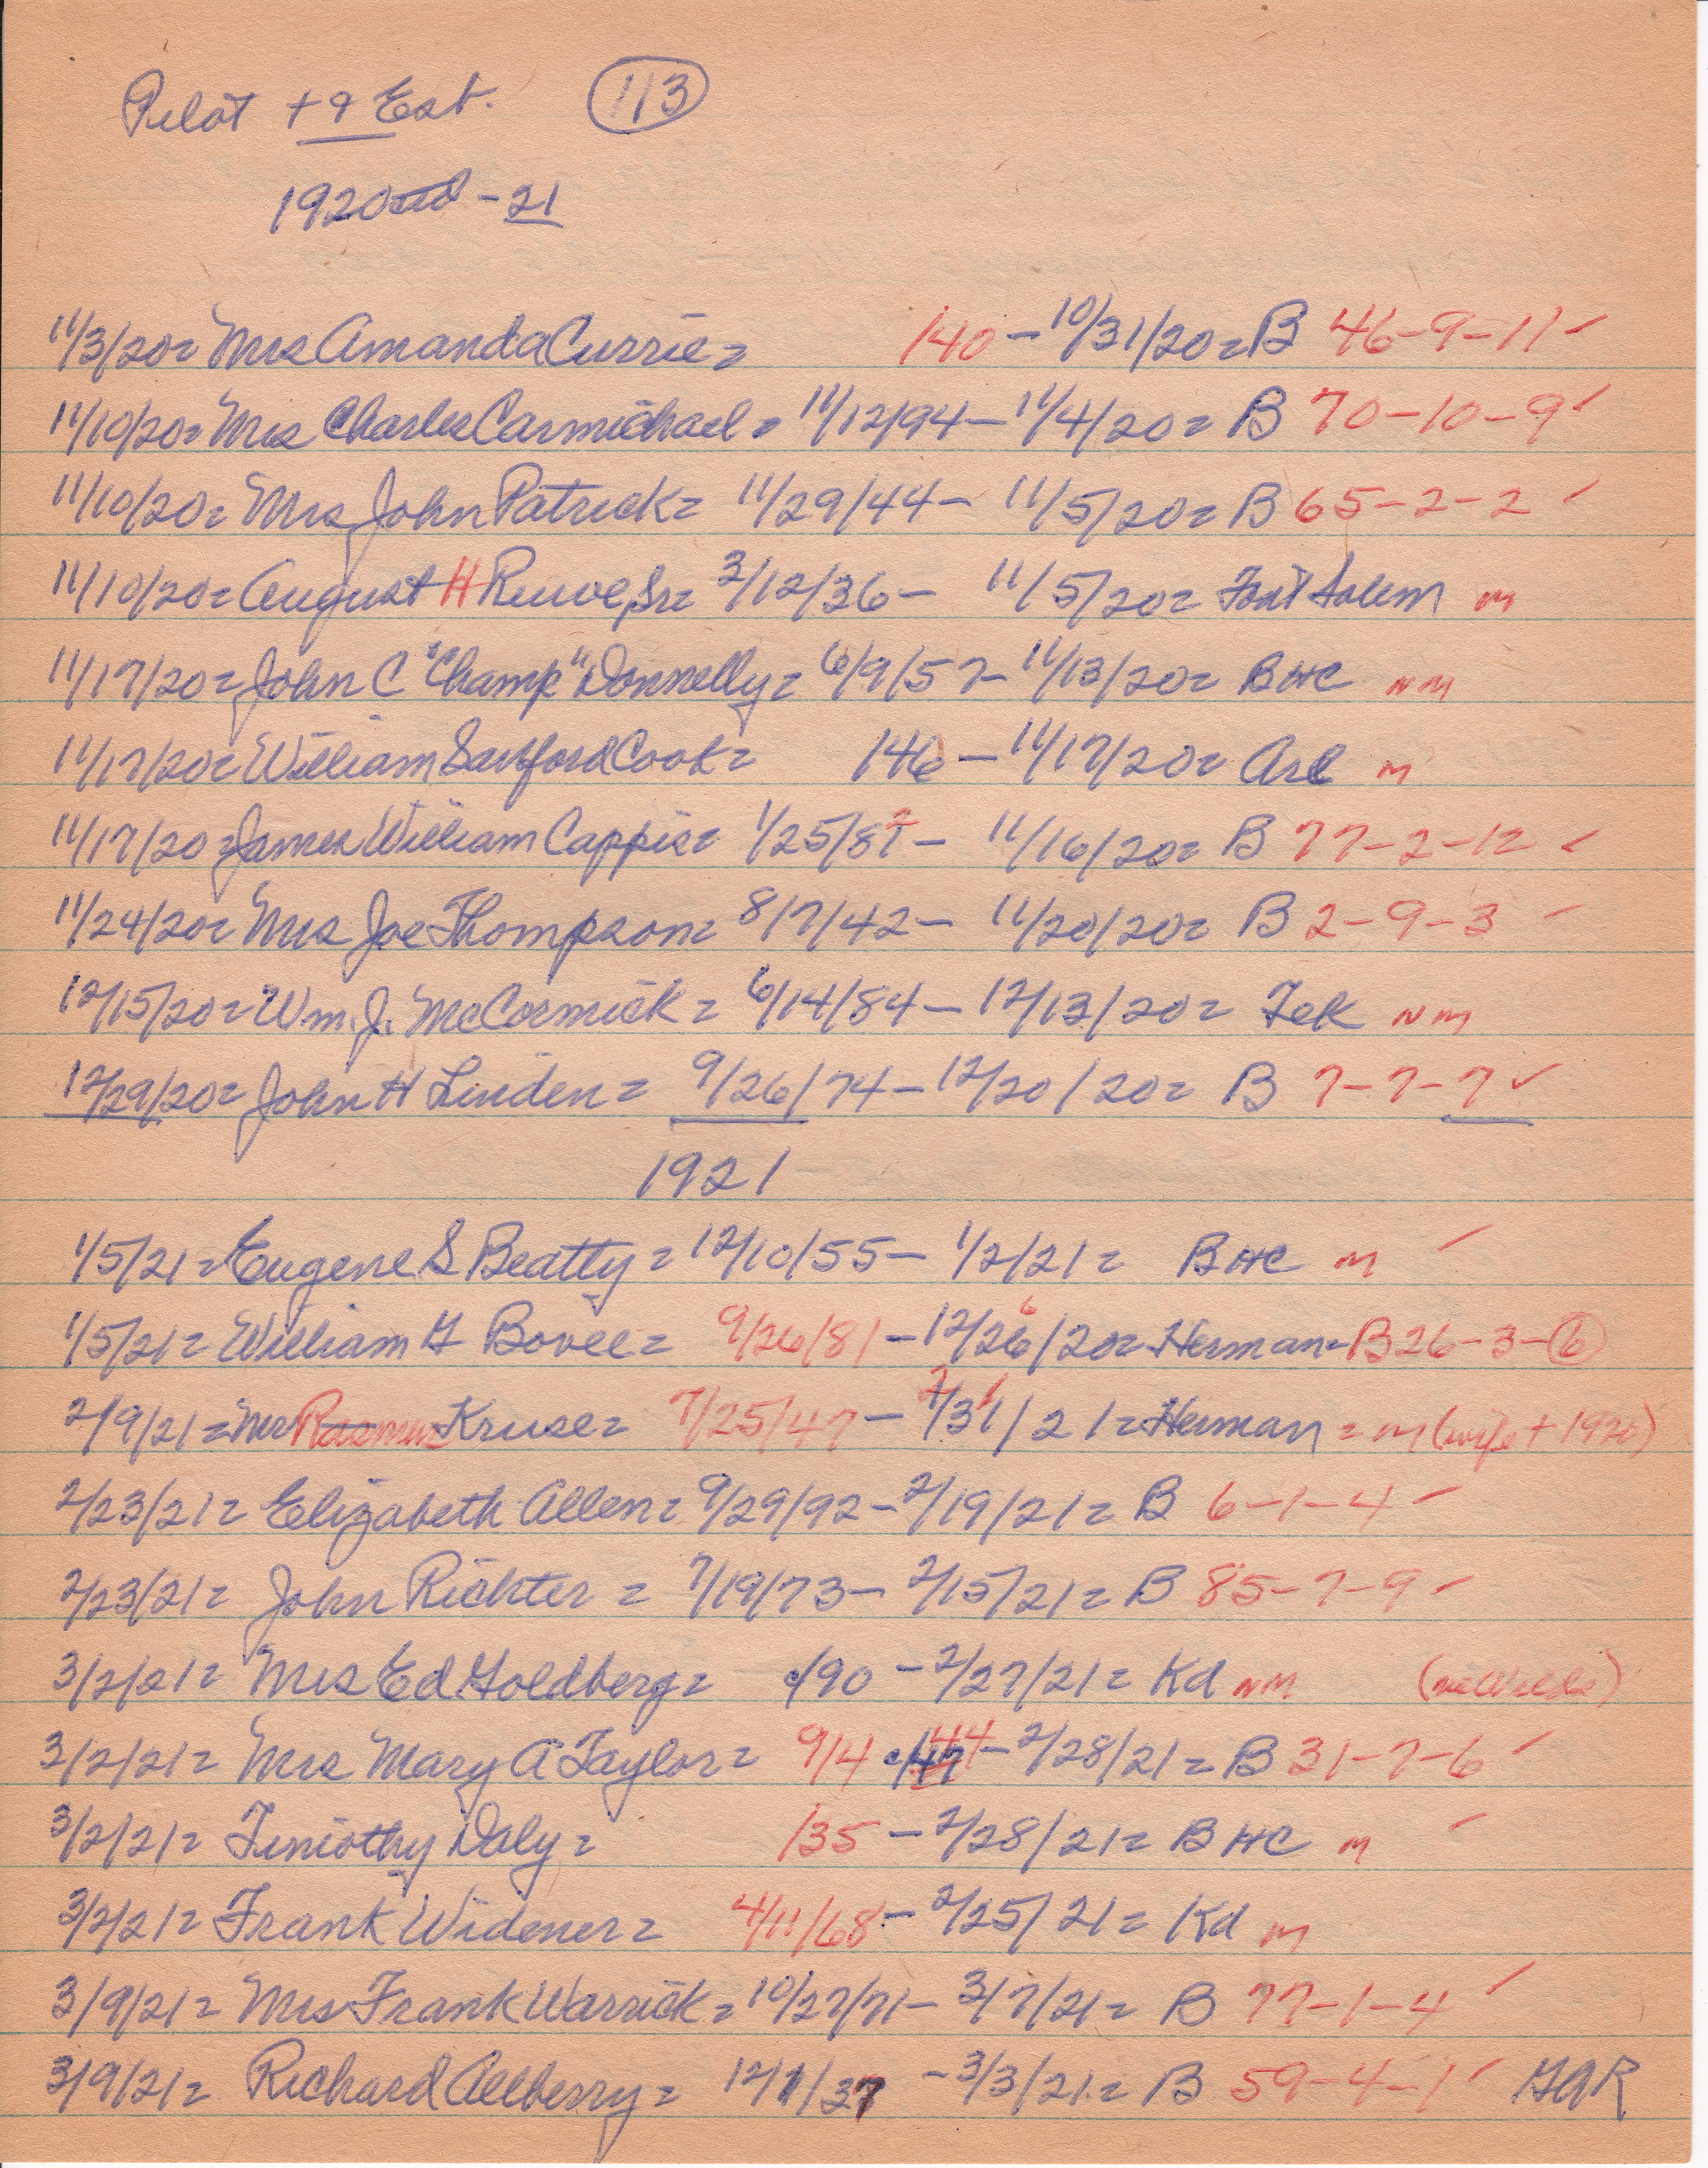 Pilot + 9 Ext. 113
1920 - 21
11/3/20= Mrs Amanda Currie= /40 - 10/31/20= B 46-9-11 ✓
11/10/20= Mrs Charles Carmichael = 11/12/94 - 11/4/20= B 70-10-9 ✓
11/10/20= Mrs John Patrick= 11/29/44 - 11/5/20= B 65-2-2 ✓
11/10/20= August H Ruwe, Sr= 3/12/36 - 11/5/20= Font Salem m
11/17/20= John C "Champ" Donnelly= 6/9/57 - 11/13/20= BHC nm
11/17/20= William Sanford Cook= 146 - 11/17/20= Arl m
11/17/20= James William Cappis= 1/25/87 - 11/16/20= B 77-2-12 ✓
11/24/20= Mrs Joe Thompson= 8/7/42 - 11/20/20= B 2-9-3 ✓
12/15/20= Wm. J. McCormick = 6/14/84 - 12/13/20= Tek nm
12/29/20= John H Linden= 9/26/74 - 12/20/20= B 7-7-7 ✓
1921
1/5/21= Eugene S Beatty= 12/10/55 - 1/2/21= BHC m ✓
1/5/21= William H Bovee= 9/26/81 - 12/26/20= Herman= B 26-3-6
2/9/21= Mr Rasmus Kruse= 7/25/47 - 1/31/21= Herman = m (wife + 1920)
2/23/21= Elizabeth Allen= 9/29/92 - 2/19/21= B 6-1-4 ✓
2/23/21= John Richter = 7/19/73 - 2/15/21= B 85-7-9 ✓
3/2/21= Mrs Ed Goldberg= c/90 - 2/27/21= Kd nm
3/2/21= Mrs Mary A Taylor= 9/4 44 - 2/28/21= B 31-7-6 ✓
3/2/21= Timothy Daly= /35 - 2/28/21= BHC m ✓
3/2/21= Frank Widener= 4/11/68 - 2/25/21= Kd m
3/9/21= Mrs Frank Warrick= 10/27/71 - 3/7/21= B 77-1-4 ✓
3/9/21= Richard Allberry= 12/1/37 - 3/3/21= B 59-4-1 ✓ GAR